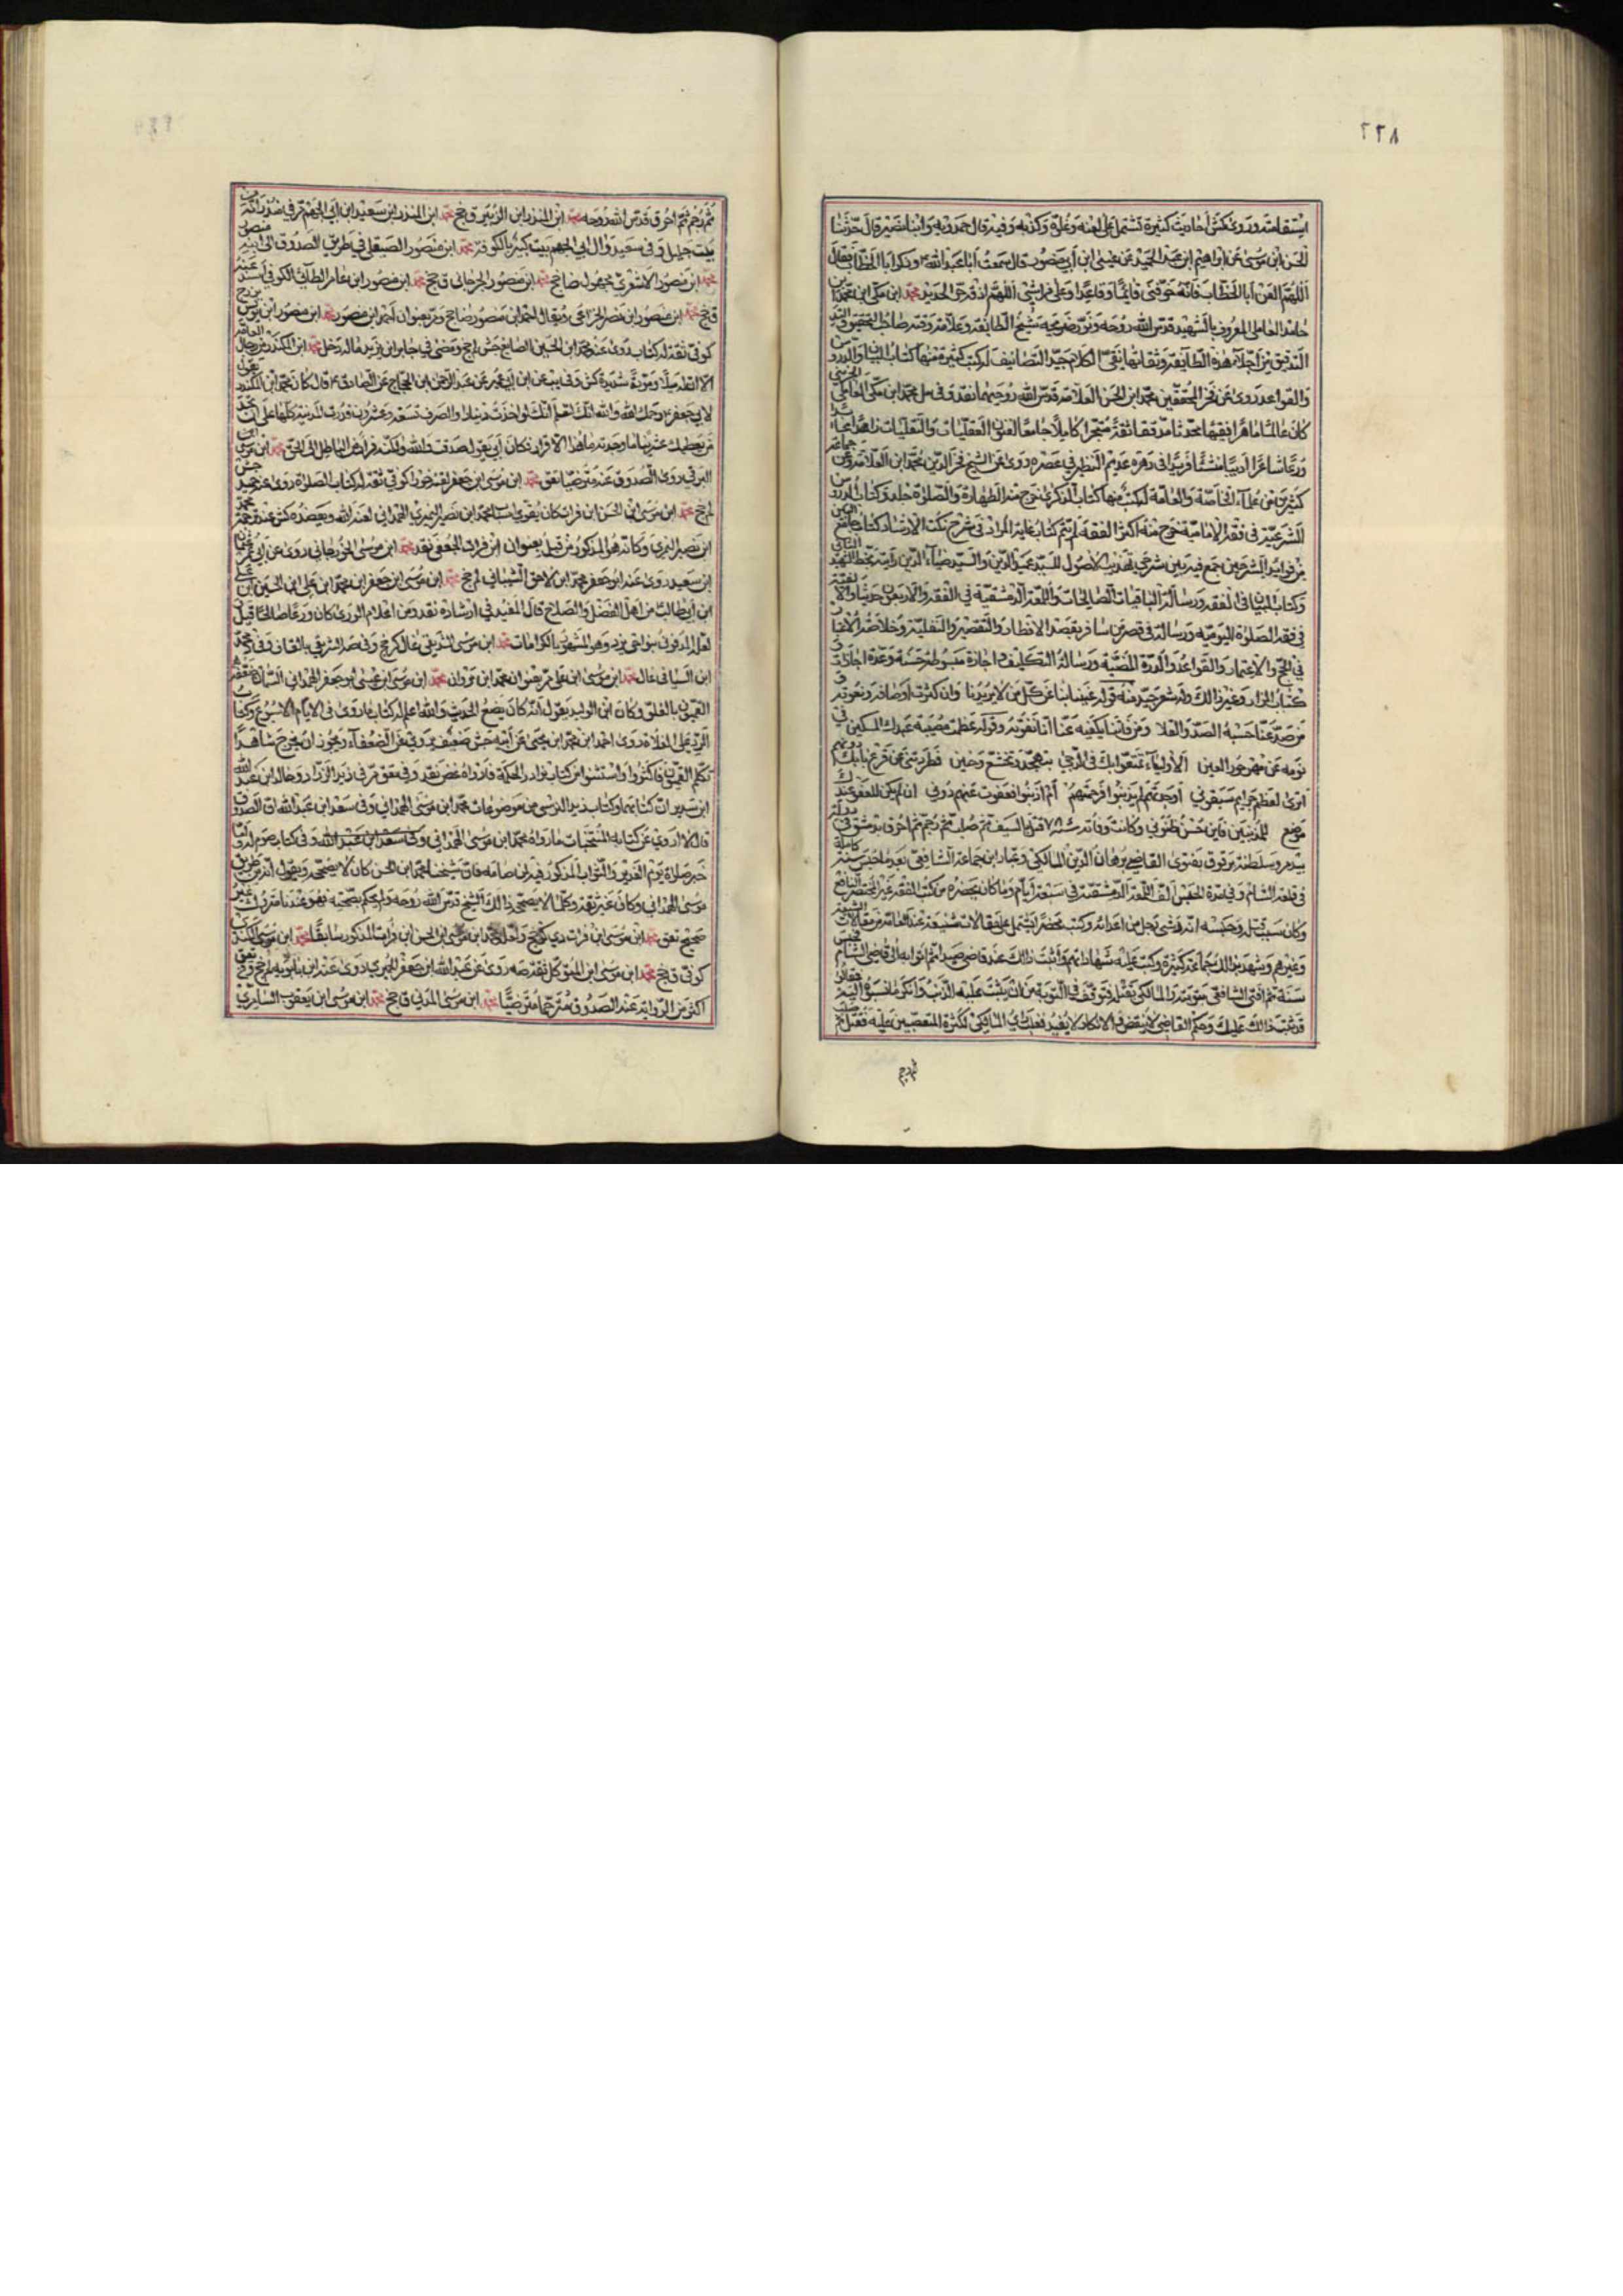 ٢٢٨
استقامته وروى كش أحاديث كثيرة تشتمل على لعنه وغلوه وكذبه وفيه قال حمدويه وابنا نصير قال حدثنا
الحسن ابن موسى عن ابراهيم ابن عبد الحميد عن عيسى ابن أبي منصور قال سمعت أبا عبد الله وذكر أبا الخطاب فقال
اللهم العن أبا الخطاب فانه خوفني قائما وقاعدا وعلى فراشي اللهم اذقه حر الحديد محمد ابن مكي ابن محمد ابن
حامد العاملي المعروف بالشهيد قدس الله روحه ونور ضريحه شيخ الطائفة وعلامة وقته صاحب التحقيق و
التدقيق من أجلاء هذه الطائفة وثقاتها نقي الكلام جيد التصانيف له كتب كثيرة منها كتاب البيان والدروس
والقواعد روى عن فخر المحققين محمد ابن الحسن العلامة قدس الله روحيهما نقد وفي مل محمد ابن مكي العاملي الجزيني
كان عالما ماهرا فقيها محدثا مدققا ثقة متبحرا كاملا جامعا لفنون العقليات والنقليات زاهدا عابدا
ورعا شاعرا أديبا منشئا فريدا في دهره عديم النظير في عصره روى عن الشيخ فخر الدين محمد ابن العلامة وعن جماعة
كثيرين من علماء الخاصة والعامة له كتب منها كتاب الذكرى خرج منه الطهارة والصلوة جلد وكتاب الدروس
الشرعية في فقه الامامية خرج منه أكثر الفقه لم يتم كتاب غاية المراد في شرح نكت الارشاد كتاب جامع البين
من فوائد الشرحين جمع فيه بين شرحي تهذيب الأصول للسيد عميد الدين والسيد ضياء الدين رأيته بخط الشهيد الثاني
وكتاب البيان في الفقه ورسالة الباقيات الصالحات واللمعة الدمشقية في الفقه والأربعون حديثا والألفية
في فقه الصلوة اليومية ورسالة في قصر من سافر بقصد الافطار والتقصير والنفلية وخلاصة الاعتبار
في الحج والاعتمار والقواعد والدرة المضيئة ورسالة التكليف اجازة مبسوطة حسنة وعدة اجازات و
كتاب المزار وغير ذالك وله شعر جيد منه قوله غنينا بنا عن كل من لا يريدنا وان كثرت أوصافه ونعوته و
من صد عنا حسبه الصد والقلا ومن فاتنا يكفيه عنا أنا نفوته وقوله عظمت مصيبة عبدك المسكين في
نومه عن مهر حور العين الأولياء تمتعوا بك في الدجى بتهجد وتخشع وحنين فطردتني عن قرع بابك دونهم
أترى لعظم جرايم سبقوني أوجدتهم لم يذنبوا فرحمتهم أم أذنبوا فعفوت عنهم دوني ان لم يكن للعفو عندك
موضع للمذنبين فأين حسن ظنوني وكانت وفاته سنة ٧٨٦ قتل بالسيف ثم صلب ثم رجم ثم احرق بدمشق في دولة
بيدمر وسلطنة برقوق بفتوى القاضي برهان الدين المالكي وعباد ابن جماعة الشافعي بعد ما حبس سنة كاملة
في قلعة الشام وفي مدة الحبس ألف اللمعة الدمشقية في سبعة أيام وما كان يحضره من كتب الفقه غير المختصر النافع
وكان سبب قتله وحبسه انه وشى به رجل من أعدائه وكتب محضرا يشتمل على مقالات شنيعة عند العامة من مقالات الشيعة
وغيرهم وشهد بذالك جماعة كثيرة وكتب عليه شهاداتهم وأثبت ذالك عند قاضي صيدا ثم أتوا به إلى قاضي الشام فحبس
سنة ثم أفتى الشافعي بتوبته والمالكي بقتله فتوقف في التوبة من أن يثبت عليه الذنب وأنكر ما نسبوه اليه فقالوا
قد ثبت ذالك عليك وحكم القاضي لا ينقض والانكار لا يفيد فغلب رأي المالكي لكثرة المتعصبين عليه فقتل ثم صلب
ثم رجم
ثم رجم ثم احرق قدس الله روحه محمد ابن المنذر ابن الزبير ق جخ محمد ابن المنذر ابن سعيد ابن أبي الجهم مر في منذر انه من
بيت جليل وفي سعيد وآل أبي الجهم بيت كبير بالكوفة محمد ابن منصور الصيقل في طريق الصدوق الى أبيه منصور
محمد ابن منصور الأشعري مجهول ضا جخ محمد ابن منصور الجرجاني ق جخ محمد ابن منصور ابن عامر الطائي الكوفي أسند عنه
ق جخ محمد ابن منصور ابن نصر الخزاعي ويقال محمد ابن منصور ضا جخ ومر بعنوان محمد ابن منصور محمد ابن منصور ابن يونس بزرج
كوفي ثقة له كتاب روى عنه محمد ابن الحسين الصايغ جش لم جخ ومضى في جابر ابن يزيد ماله دخل محمد ابن المنكدر من رجال العامة
الا ان له ميلا ومودة شديدة كش وفي يب عن ابن أبي عمير عن عبد الرحمن ابن الحجاج عن الصادق قال كان محمد ابن المنكدر يقول
لأبي جعفر رحمك الله والله انك لتعلم انك لو اخذت دينارا والصرف تسعة وعشرون فدرت المدينة كلها على أن تجد
من يعطيك عشرين ما وجدته وما هذا الا فرار فكان أبي يقول صدقت والله ولكنه فرار من الباطل الى الحق محمد ابن موسى ابن
البرقي روى الصدوق عنه مترضيا تعق محمد ابن موسى ابن جعفر لقبه خورا كوفي ثقة له كتاب الصلوة روى عنه حميد جش
لم جخ محمد ابن موسى ابن الحسن ابن فرات كان يقوي أسباب محمد ابن نصير النميري لعنه الله ويعضده كش عند ترجمة محمد
ابن نصير النميري وكانه هو المذكور من قبل بعنوان ابن فرات الجعفي نقد محمد ابن موسى الخوزجاني روى عن أبي عمر وعثمان
ابن سعيد روى عنه أبو جعفر محمد ابن لاحق الشيباني لم جخ محمد ابن موسى ابن جعفر ابن محمد ابن علي ابن الحسين ابن علي
ابن أبي طالب من أهل الفضل والصلاح قال المفيد في ارشاده نقد ومن اعلام الورى كان ورعا صالحا قيل
لعله المدفون بنواحي يزد وهو المشهور بالكرامات محمد ابن موسى الشريقي غال كر جخ وفي صه الشريفي بالقاف وفي د محمد
ابن السيافي غال محمد ابن موسى ابن علي مر بعنوان محمد ابن مروان محمد ابن موسى ابن عيسى أبو جعفر الهمداني السمان ضعفه
القميون بالغلو وكان ابن الوليد يقول انه كان يضع الحديث والله أعلم له كتاب ما روى في الايام الاسبوع وكتاب
الرد على الغلاة روى احمد ابن محمد ابن يحيى عن أبيه جش ضعيف يروي عن الضعفاء ويجوز أن يخرج شاهدا
تكلم القميون فاكثروا واستثنوا من كتاب نوادر الحكمة ما رواه غض نقد وفي تعق مر في زيد الزراد وخالد ابن عبد الله
ابن سدير ان كتابهما وكتاب زيد النرسي من موضوعات محمد ابن موسى الهمداني وفي سعد ابن عبد الله ان الصدوق
قال لا اروي عن كتابه المنتخبات ما رواه محمد ابن موسى الهمداني وفي كتاب صوم أما
خبر صلوة يوم الغدير والثواب المذكور فيه لمن صامه فان شيخنا محمد ابن الحسن كان لا يصححه ويقول انه من طريق
موسى الهمداني وكان غير ثقة وكلما لا يصححه ذالك الشيخ قدس الله روحه ولم يحكم بصحته فهو عندنا متروك غير
صحيح تعق محمد ابن موسى ابن فرات دي كر جخ ولعله محمد ابن موسى ابن الحسن ابن فرات المذكور سابقا محمد ابن موسى الكندي
كوفي ق جخ محمد ابن موسى ابن المتوكل ثقة صه روى عن عبد الله ابن جعفر الحميري روى عنه ابن بابويه لم جخ وفي تعق
أكثر من الرواية عنه الصدوق مترحما مترضيا محمد ابن موسى المدني ق جخ محمد ابن موسى ابن يعقوب السامري